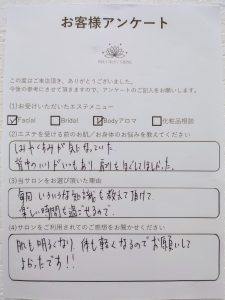 お客様アンケート
この度はご来店頂き、ありがとうございました。
今後の参考にさせて頂きますので、アンケートのご記入をお願いします。
(1)お受けいただいたエステメニュー
Facial Bridal Bodyアロマ 化粧品相談
(2)エステを受ける前のお肌／お身体のお悩みを教えてください
しみやくすみが気になっていた
首やの いたみもあり 肩もほぐしてほしかった。
(3)当サロンをお選び頂いた理由
毎回 いろいろな知識も教えて頂けて
楽しい時間を過ごせるので
(4)サロンをご利用されてのご感想をお聞かせください
肌も明るくなり、体も軽くなるのでお願いして
よかったです!!